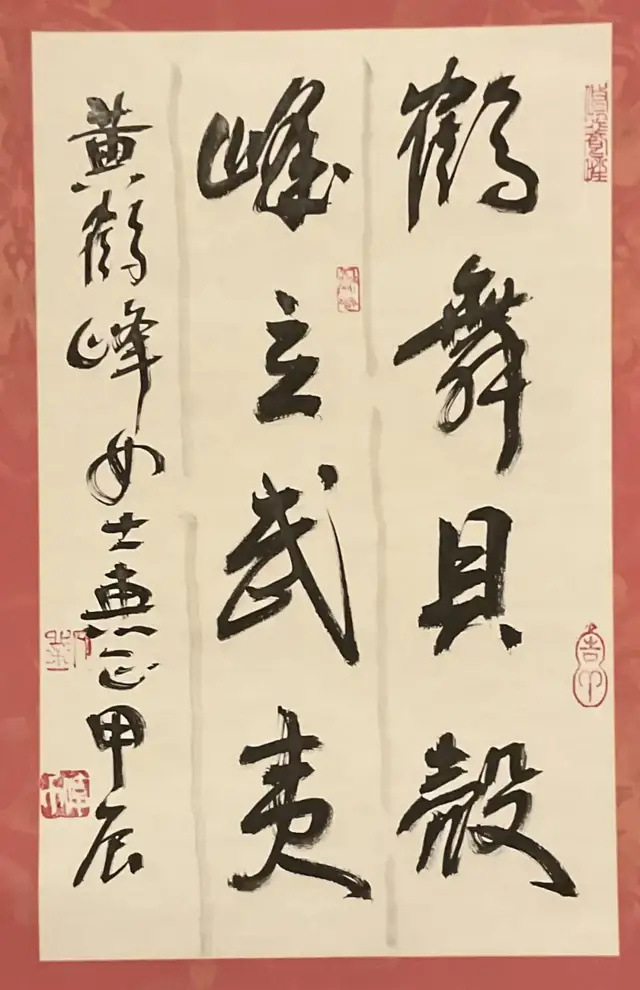 鶴舞貝殼
峰立武夷
黄鶴峰女士惠正甲辰